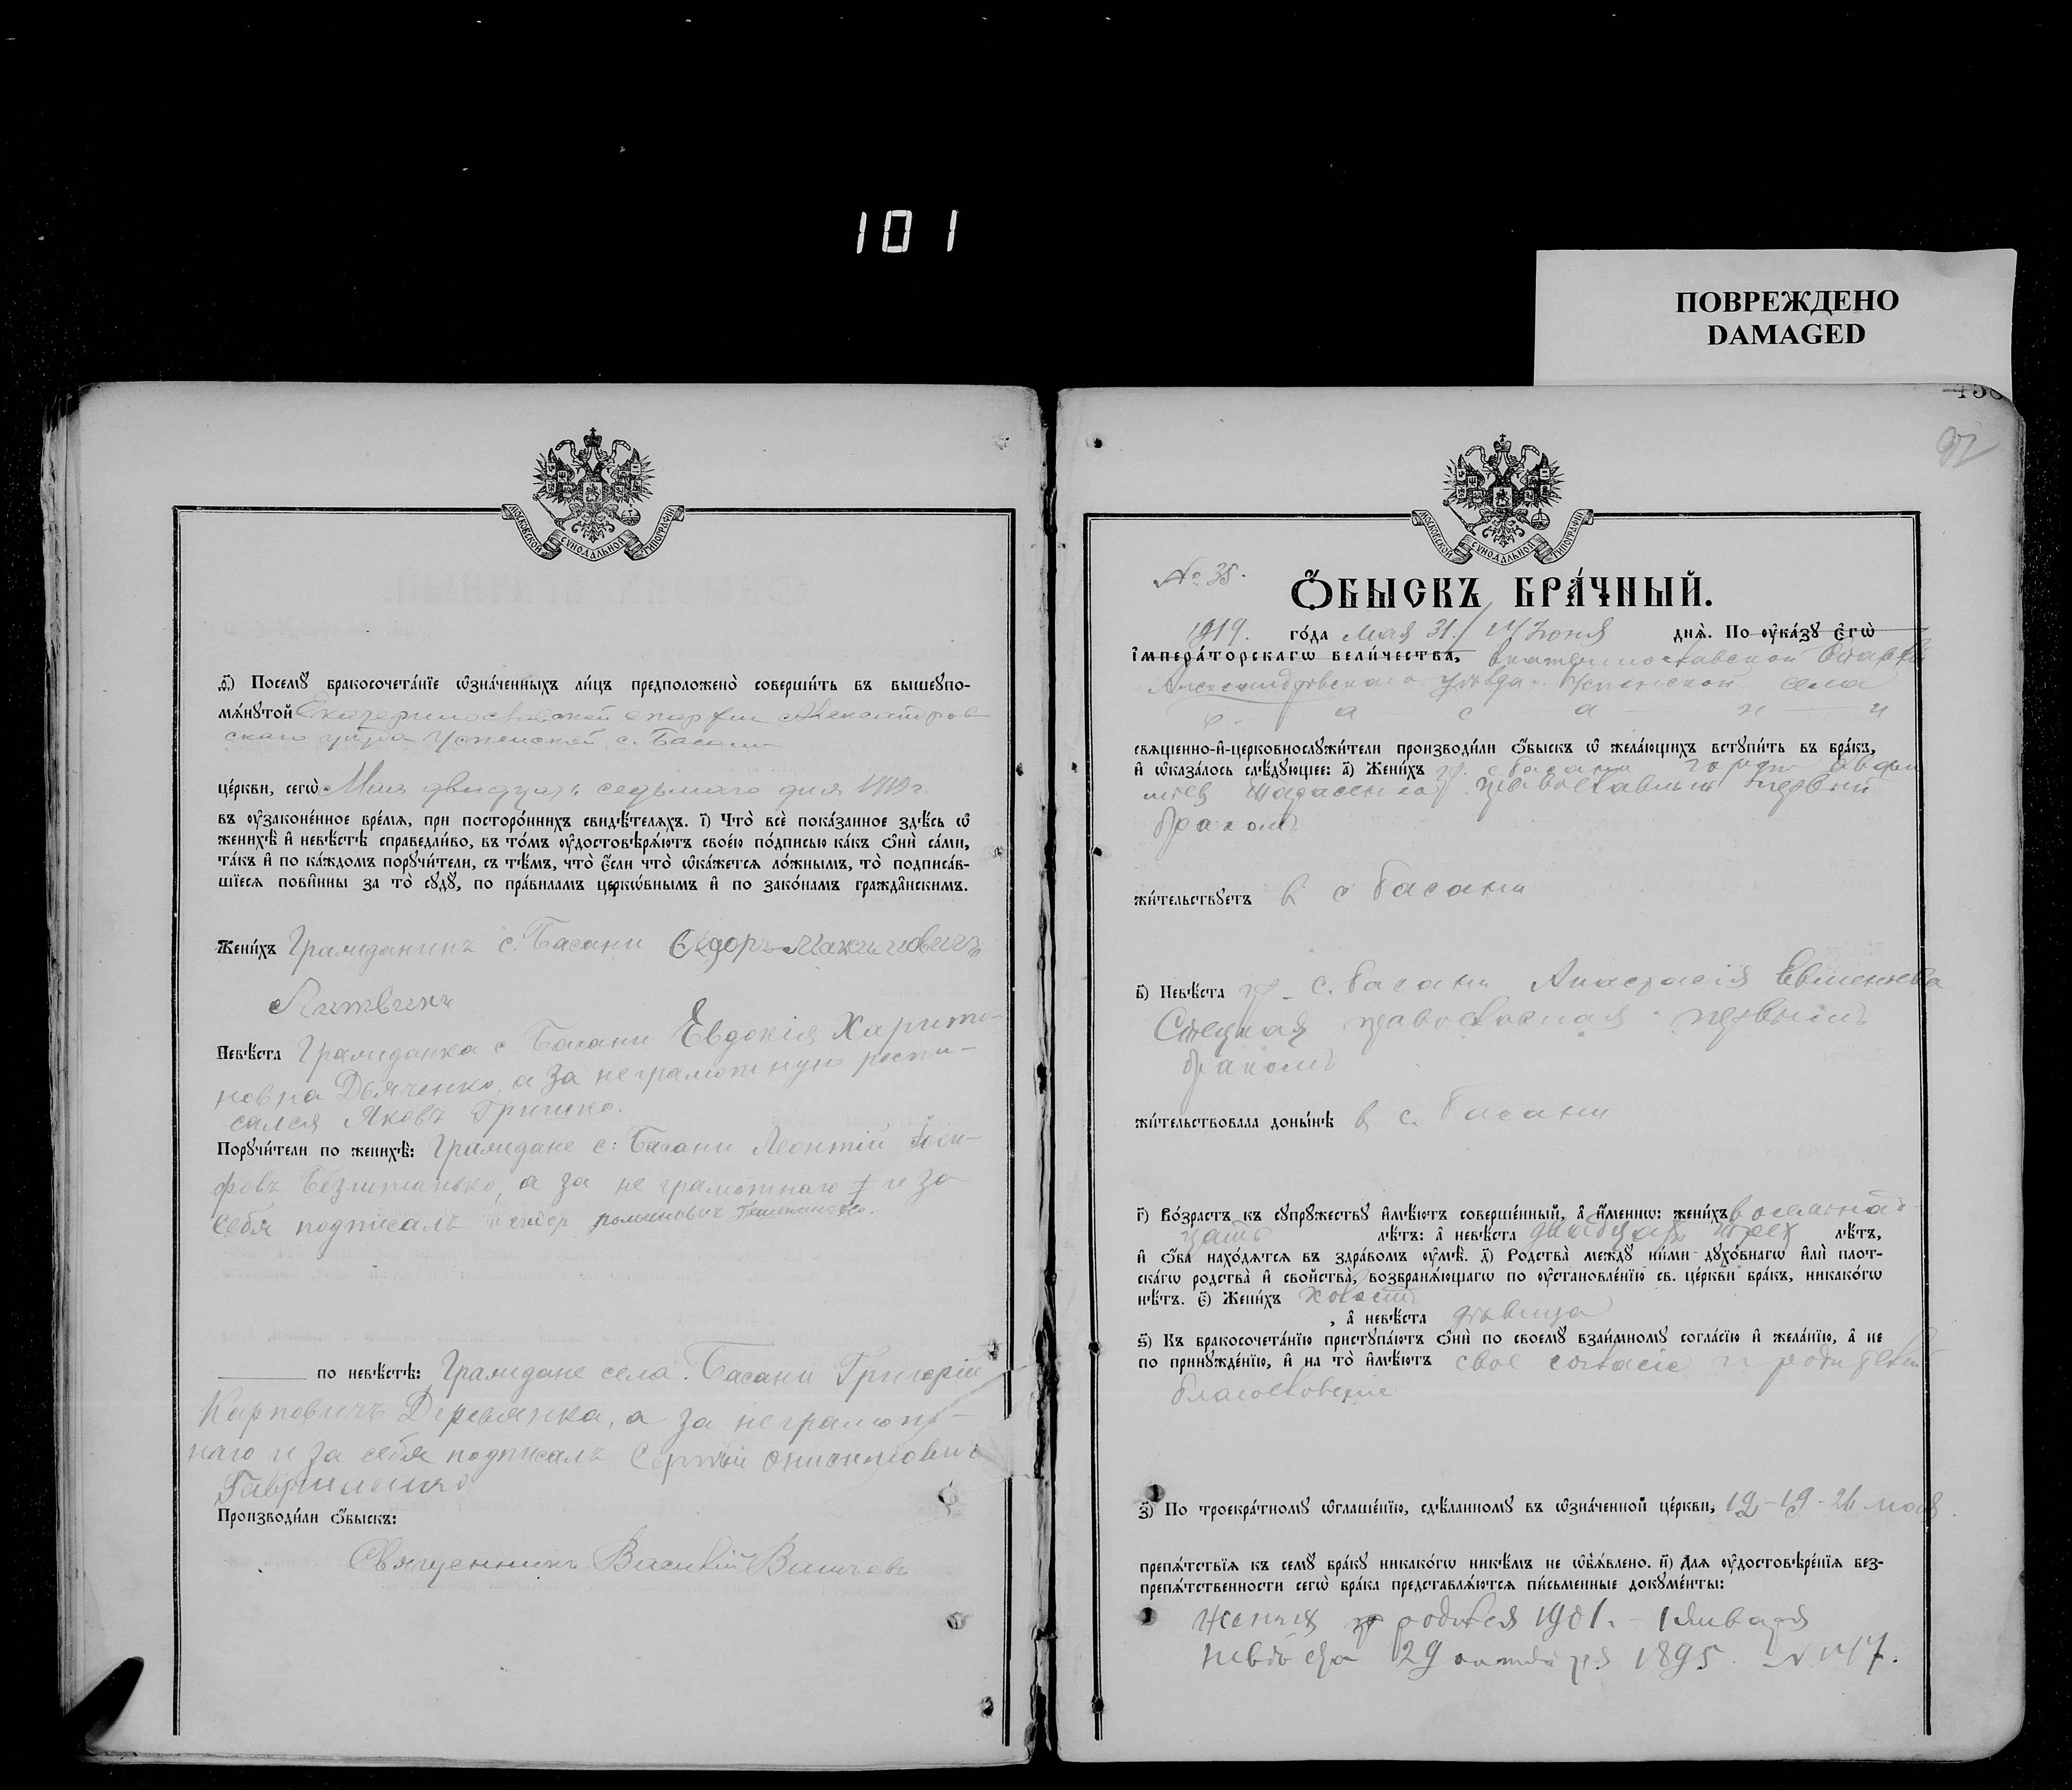 101
ПОВРЕЖДЕНО
DAMAGED
МОСКОВСКОЙ СѴНОДАЛЬНОЙ ТИПОГРАФІИ
ѳ҃) Посемꙋ бракосочета́нїе ѡ҆зна́ченныхъ ли́цъ предположено̀ соверши́ть въ вышеꙋпо-
мѧ́нꙋтой Екатеринославской епархіи Александров-
скаго уѣзда Успенской с. Басани
це́ркви, сегѡ̀ Мая двадцать седьмаго дня 1919 г.
въ ѹ҆зако́ненное вре́мѧ, при посторо́ннихъ свидѣ́телѧхъ. і҃) Что̀ всѐ пока́занное здѣ́сь ѡ҆
женихѣ̀ и҆ невѣ́стѣ справедли́во, въ то́мъ ѹ҆достовѣрѧ́ютъ свое́ю по́дписью ка́къ ѻ҆нѝ са́ми,
та́къ и҆ по ка́ждомъ порꙋчи́тели, съ тѣ́мъ, что̀ є҆́сли что̀ ѡ҆ка́жетсѧ ло́жнымъ, то̀ подписа́в-
шїесѧ пови́нны за то̀ сꙋдꙋ̀, по пра́виламъ церко́внымъ и҆ по зако́намъ гражда́нскимъ.
Жени́хъ Гражданинъ с. Басани Сидоръ Макимовичъ
Литвинъ
Невѣ́ста Гражданка с Басани Евдокія Харито-
новна Дьяченко, а за неграмотную роспи-
сался Яковъ Гришко.
Порꙋчи́тели по женихѣ̀: Граждане с: Басани Леонтій Іоси-
фовъ, а за не грамотнаго и за
себя подписалъ
по невѣ́стѣ: Граждане села. Басани Григорій
Карповичъ Деревянка, а за неграмот-
наго и за себя подписалъ Сергѣй Онисимовичъ
Гавриленко
Производи́ли ѻ҆́быскъ:
Священникъ Василій
МОСКОВСКОЙ СѴНОДАЛЬНОЙ ТИПОГРАФІИ
92
№ 35.
Ѻ҆́БЫСКЪ БРА́ЧНЫЙ.
1919. го́да мая 31./ Июня днѧ̀. По ѹ҆ка́зꙋ є҆гѡ̀
і҆мпера́торскагѡ вели́чества, Екатеринославской Епархіи
Александровскаго уѣзда Успенской села
Б а с а н и
свѧще́нно-и҆-церковнослꙋжи́тели производи́ли ѻ҆́быскъ ѡ҆ жела́ющихъ встꙋпи́ть въ бра́къ,
и҆ ѡ҆каза́лось слѣ́дꙋющее: а҃) Жени́хъ гр. с. Басани
православный первый
бракомъ
жи́тельствꙋетъ в с Басани
в҃) Невѣ́ста гр. с. Басани Анастасія Евменіева
православная первымъ
бракомъ
жи́тельствовала доны́нѣ в с. Басани
г҃) Во́зрастъ къ сꙋпрꙋ́жествꙋ и҆мѣ́ютъ соверше́нный, а҆ и҆́менно: жени́хъ восемнад-
цать лѣ́тъ: а҆ невѣ́ста двадцать трех лѣ́тъ,
и҆ ѻ҆́ба нахо́дѧтсѧ въ здра́вомъ ѹ҆мѣ̀. д҃) Родства̀ междꙋ ни́ми дꙋхо́внагѡ и҆лѝ плот-
ска́гѡ родства̀ и҆ сво́йства, возбранѧ́ющагѡ по ѹ҆становле́нїю св. це́ркви бра́къ, никако́гѡ
нѣ́тъ. є҃) Жени́хъ холостъ
, а҆ невѣ́ста дѣвица
ѕ҃) Къ бракосочета́нїю пристꙋпа́ютъ ѻ҆нѝ по своемꙋ̀ взаи́мномꙋ согла́сїю и҆ жела́нїю, а҆ не
по принꙋжде́нїю, и҆ на то̀ и҆мѣ́ютъ свое согласіе и родителей
благословеніе
з҃) По троекра́тномꙋ ѡ҆глаше́нїю, сдѣ́ланномꙋ въ ѡ҆зна́ченной це́ркви, 12-19-26 мая
препѧ́тствїѧ къ семꙋ̀ бра́кꙋ никако́гѡ никѣ́мъ не ѡ҆б̾ѧ́влено. и҃) Длѧ ѹ҆достовѣре́нїѧ без-
препѧ́тственности сегѡ̀ бра́ка представлѧ́ютсѧ пи́сьменные докꙋме́нты:
жених родился 1901. - 1 января
невѣста 29 октября 1895